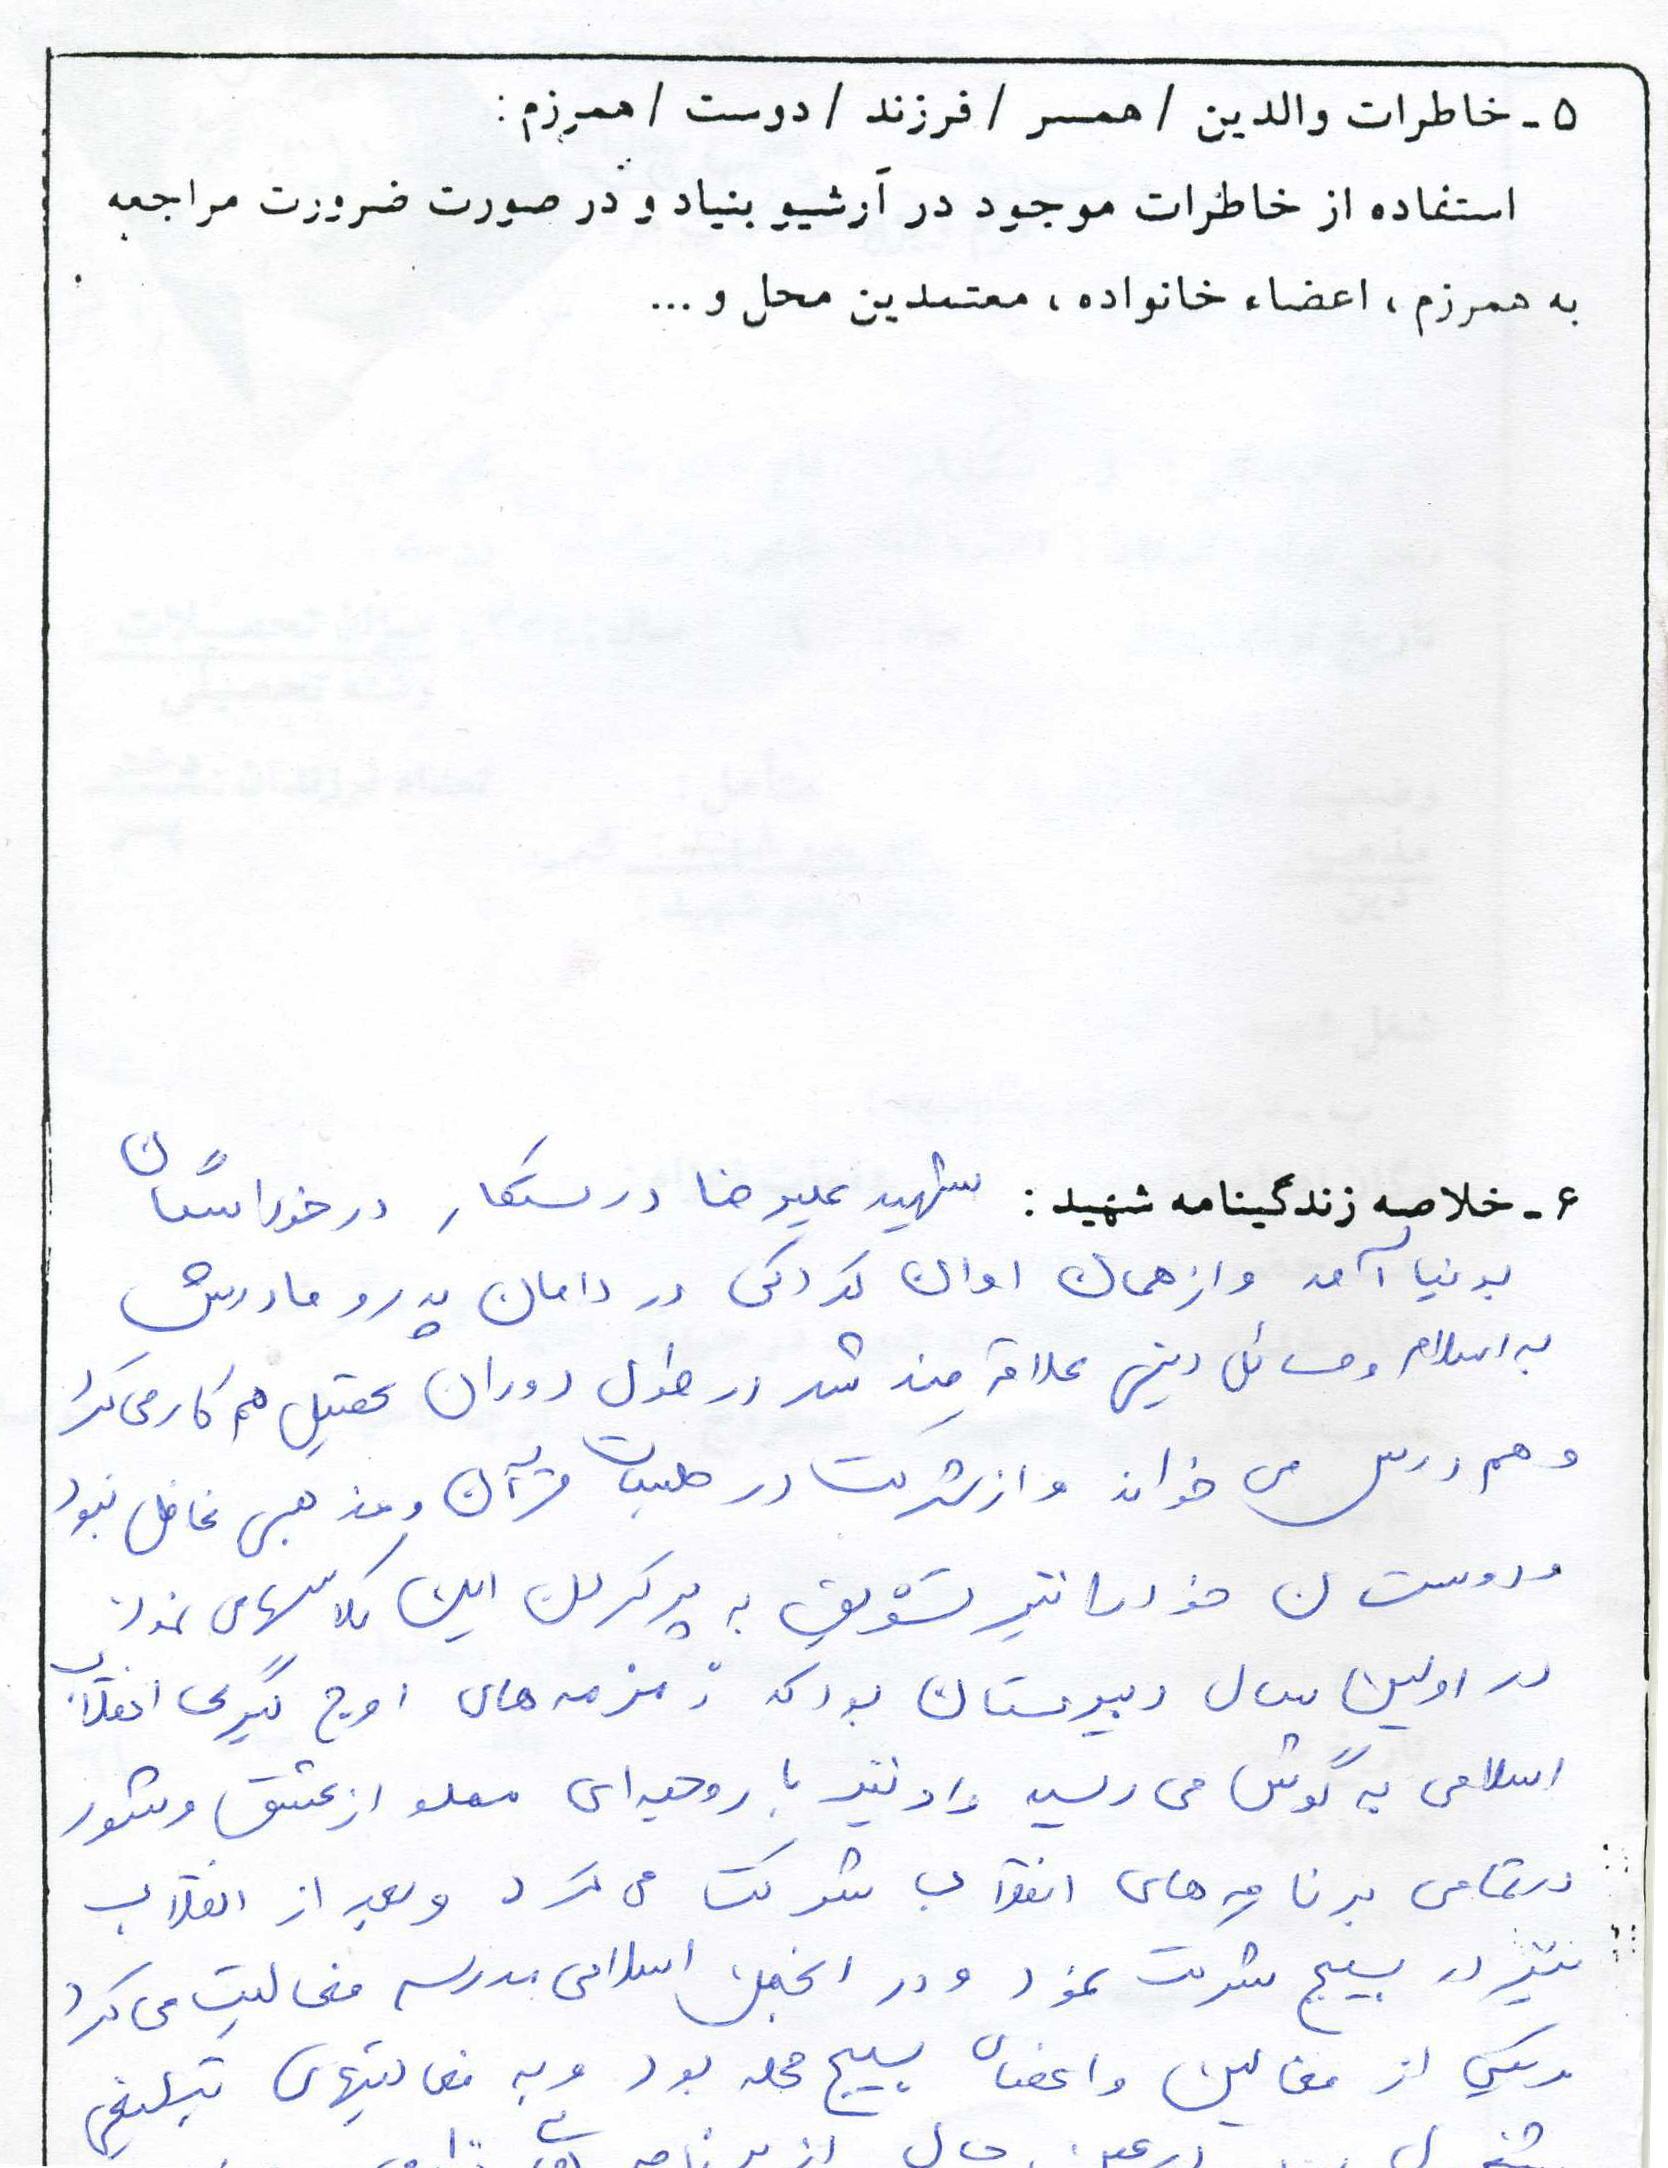 ۵ - خاطرات والدین / همسر / فرزند / دوست / همرزم :
استفاده از خاطرات موجود در آرشیو بنیاد و در صورت ضرورت مراجعه
به همرزم ، اعضاء خانواده ، معتمدین محل و ...
۶ - خلاصه زندگینامه شهید : شهید علیرضا درستکار در خوراسگان
بدنیا آمد و از همان اوان کودکی در دامان پدر و مادرش
به اسلام و مسائل دینی علاقه مند شد در طول دوران تحصیل هم کار می کرد
و هم درس می خواند و از شرکت در جلسات قرآن و مذهبی غافل نبود
و دوستان خود را نیز تشویق به پر کردن این کلاسهای نمود
در اولین سال دبیرستان بود که زمزمه های اوج گیری انقلاب
اسلامی به گوش می رسید و او نیز با روحیه ای مملو از عشق و شور
در تمامی برنامه های انقلاب شرکت می کرد و بعد از انقلاب
نیز در بسیج شرکت نمود و در انجمن اسلامی مدرسه فعالیت می کرد
و یکی از فعالین و اعضای بسیج محله بود و به فعالیتهای تبلیغی